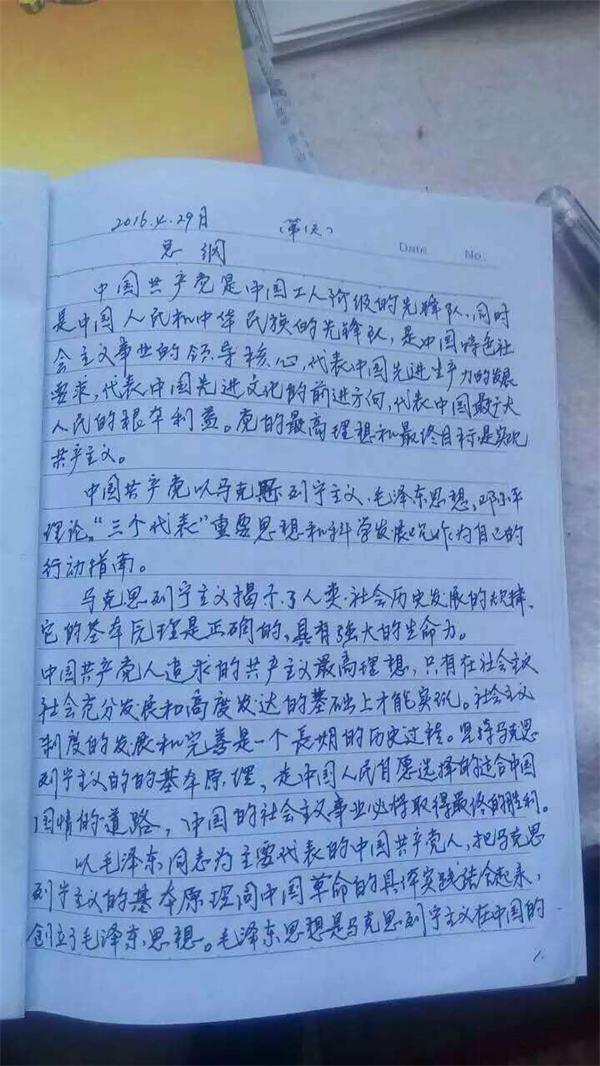 2016.4.29月 (第1天)
Date No.
总纲
中国共产党是中国工人阶级的先锋队、同时
是中国人民和中华民族的先锋队，是中国特色社
会主义事业的领导核心，代表中国先进生产力的发展
要求，代表中国先进文化的前进方向，代表中国最广大
人民的根本利益。党的最高理想和最终目标是实现
共产主义。
中国共产党以马克思列宁主义、毛泽东思想，邓小平
理论，“三个代表”重要思想和科学发展观作为自己的
行动指南。
马克思列宁主义揭示了人类社会历史发展的规律，
它的基本原理是正确的，具有强大的生命力。
中国共产党人追求的共产主义最高理想，只有在社会主义
社会充分发展和高度发达的基础上才能实现。社会主义
制度的发展和完善是一个长期的历史过程。坚持马克思
列宁主义的的基本原理，走中国人民自愿选择的适合中国
国情的道路，中国的社会主义事业必将取得最终的胜利。
以毛泽东同志为主要代表的中国共产党人，把马克思
列宁主义的基本原理同中国革命的具体实践结合起来，
创立了毛泽东思想。毛泽东思想是马克思列宁主义在中国的
1.